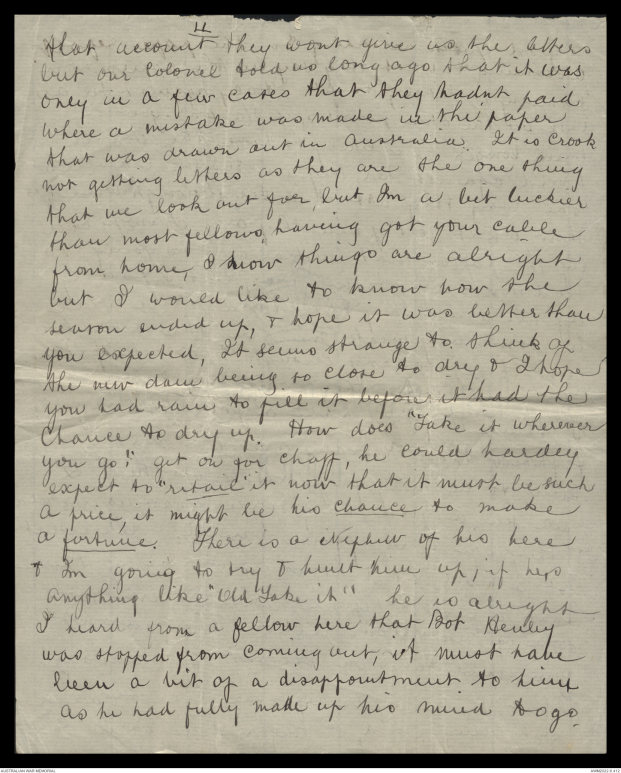 11
that account they wont give us the letters
but our Colonel told us long ago that it was
only in a few cases that they hadn't paid
where a mistake was made in the paper
that was drawn out in Australia. It is crook
not getting letters as they are the one thing
that we look out for, but Im a bit luckier
than most fellows, having got your cable
from home, I know things are alright
but I would like to know how the
season ended up, & hope it was better than
you expected, It seems strange to think of
the new dam being so close to dry & I hope
you had rain to fill it before it had the
chance to dry up. How does "Take it wherever
you go!" get on for chaff, he could hardly
expect to "retail" it now that it must be such
a price, it might be his chance to make
a fortune. There is a Nephew of his here
& Im going to try & hunt him up, if hes
anything like "Old Take it" he is alright
I heard from a fellow here that Bob Henley
was stopped from coming out, it must have
been a bit of a disappointment to him
as he had fully made up his mind to go.
AUSTRALIAN WAR MEMORIAL
AWM2022.6.412